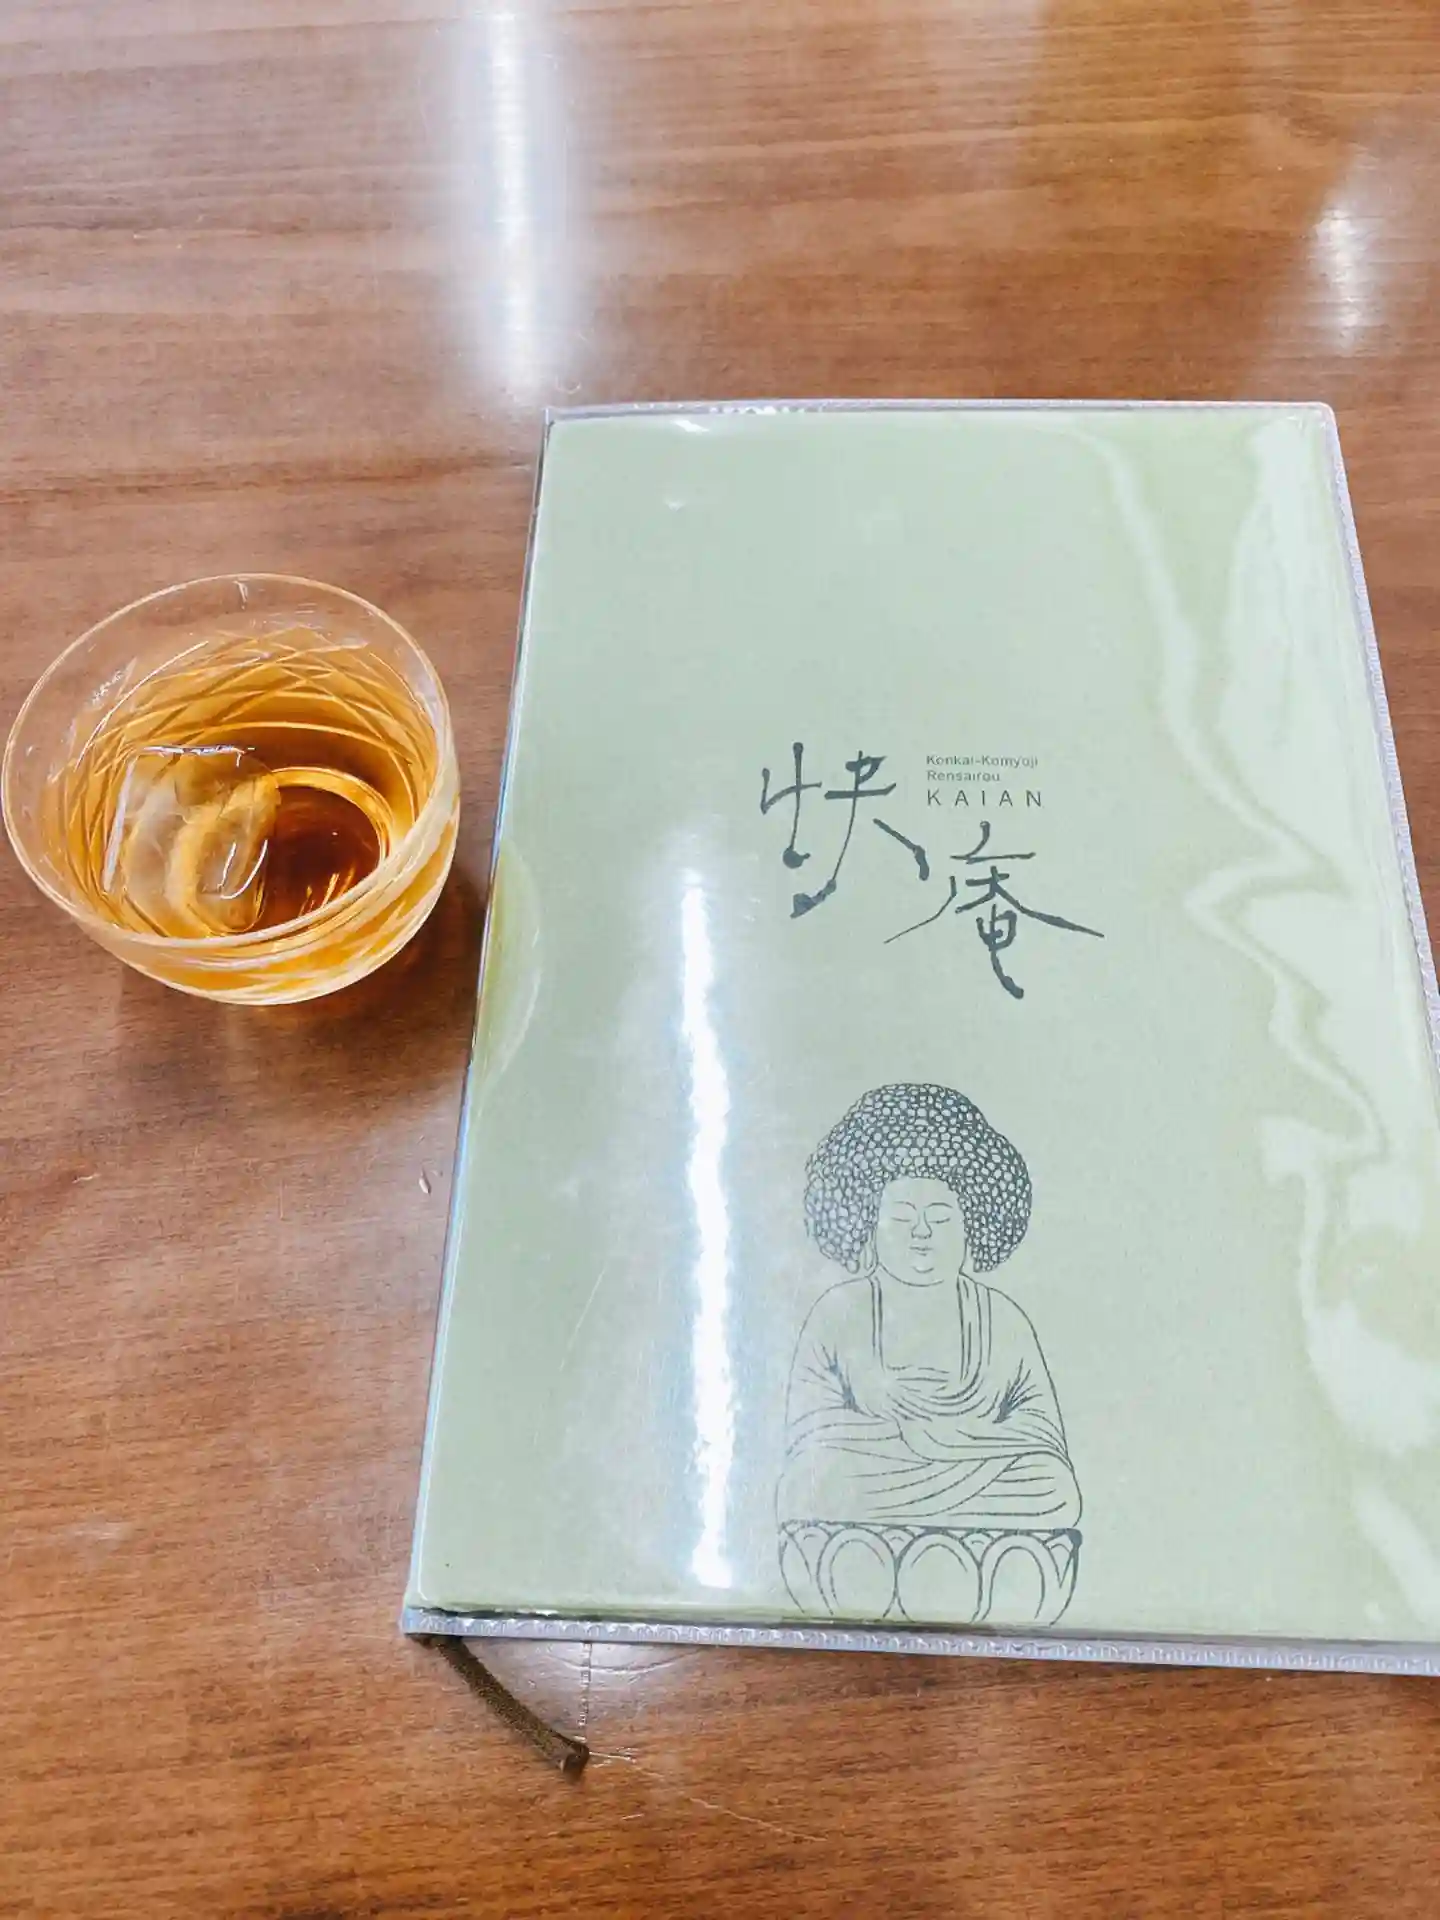 快庵
Konkai-Komyoji
Rensairou
KAIAN